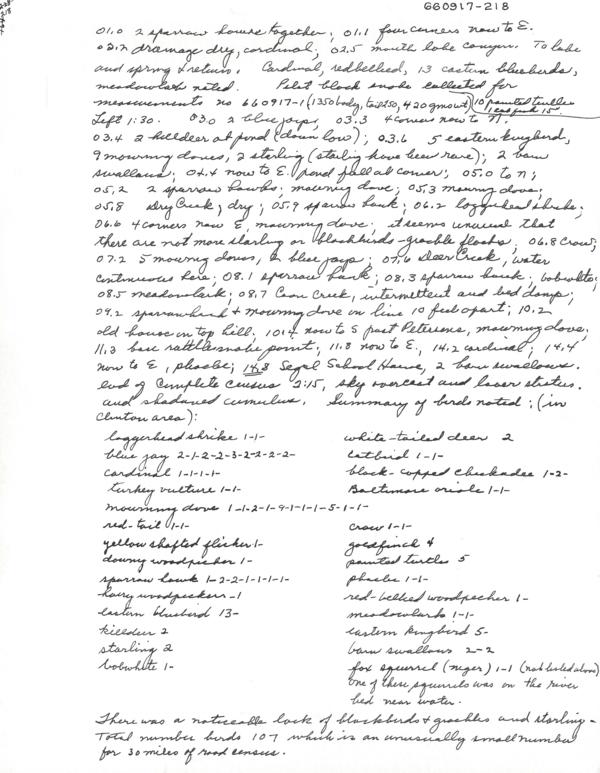 660917-218
01.0 2 sparrow hawks together; 01.1 four corners now to E.
02.2 drainage dry, cardinal; 02.5 mouth lake canyon. To lake
and spring & return. Cardinal, redbellied, 13 eastern bluebirds,
meadowlark noted. Pilot black snake collected for
measurements no 660917-1 (1350 body, tail 250, 420 gm wt) 10 painted turtles
Left 1:30. 03.0 2 blue jays; 03.3 4 corners now to N.
03.4 2 killdeer at pond (down low); 03.6 5 eastern kingbird,
9 mourning doves, 2 starling (starling have been rare); 2 barn
swallows; 04.4 now to E. pond full at corner; 05.0 to n;
05.2 2 sparrow hawks; mourning dove; 05.3 mourning dove;
05.8 Dry Creek, dry; 05.9 sparrow hawk; 06.2 loggerhead shrike;
06.6 4 corners now E, mourning dove; it seems unusual that
there are not more starling or blackbirds-grackle flocks; 06.8 crow;
07.2 5 mourning doves, 2 blue jays; 07.6 Deer Creek, water
continuous here; 08.1 sparrow hawk; 08.3 sparrow hawk; bobwhite;
08.5 meadowlark; 08.7 Coon Creek, intermittent and bed damp;
09.2 sparrow hawk & mourning dove on line 10 feet apart; 10.2
old house on top hill; 10.4 now to S past Petersens, mourning dove;
11.3 base rattlesnake point; 11.8 now to E., 14.2 cardinal; 14.4
now to E, phoebe; 14.8 Segal School House, 2 barn swallows.
End of complete census 2:15, sky overcast and lower stratus.
and shadowed cumulus. Summary of birds noted: (in
Clinton area):
loggerhead shrike 1-1- white-tailed deer 2
blue jay 2-1-2-2-3-2-2-2-2- catbird 1-1-
cardinal 1-1-1-1- black-capped chickadee 1-2-
turkey vulture 1-1- Baltimore oriole 1-1-
mourning dove 1-1-2-1-9-1-1-1-5-1-1-
red-tail 1-1- crow 1-1-
yellow shafted flicker 1- goldfinch 4
downy woodpecker 1- painted turtles 5
sparrow hawk 1-2-2-1-1-1-1- phoebe 1-1-
hairy woodpeckers -1 red-bellied woodpecker 1-
eastern bluebird 13- meadowlarks 1-1-
killdeer 2 eastern kingbird 5-
starling 2 barn swallows 2-2
bobwhite 1- fox squirrel (niger) 1-1 (not listed above)
One of these squirrels was on the river
bed near water.
There was a noticeable lack of blackbirds & grackles and starling-
Total number birds 107 which is an unusually small number
for 30 miles of road census.